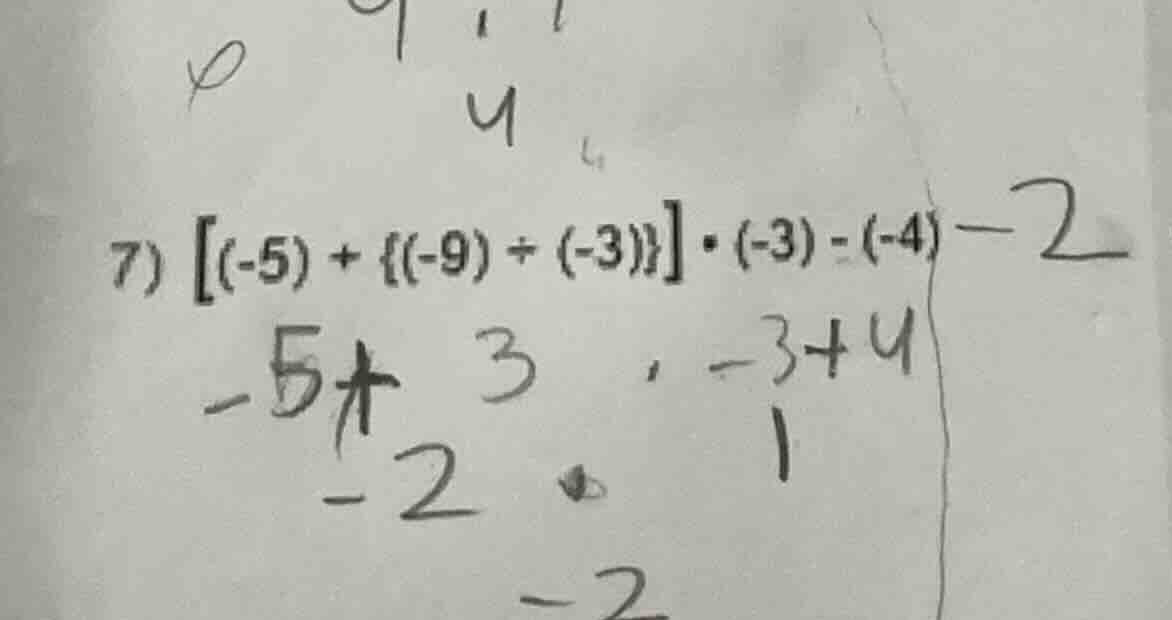 4
7) [(-5) + {(-9) ÷ (-3)}] • (-3) - (-4) -2
-5 + 3 · -3+4
-2 • 1
-2